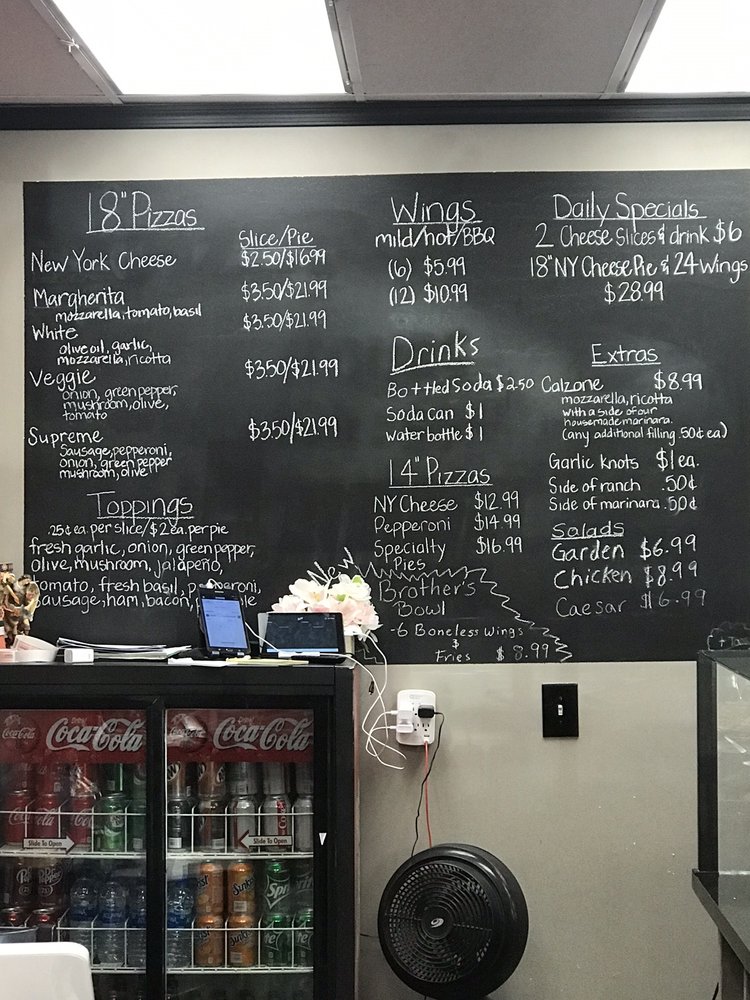 18" Pizzas
Slice/Pie
New York Cheese $2.50/$16.99
Margherita $3.50/$21.99
mozzarella, tomato, basil
White $3.50/$21.99
olive oil, garlic,
mozzarella, ricotta
Veggie $3.50/$21.99
onion, green pepper,
mushroom, olive,
tomato
Supreme $3.50/$21.99
Sausage, pepperoni,
onion, green pepper
mushroom, olive
Toppings
.25¢ ea. per slice/$2 ea. per pie
fresh garlic, onion, green pepper,
olive, mushroom, jalapeño,
tomato, fresh basil, pepperoni,
sausage, ham, bacon,
Wings
mild/hot/BBQ
(6) $5.99
(12) $10.99
Drinks
Bottled Soda $2.50
Soda can $1
water bottle $1
14" Pizzas
NY Cheese $12.99
Pepperoni $14.99
Specialty $16.99
Pies
New
Brother's
Bowl
-6 Boneless Wings
&
Fries $8.99
Daily Specials
2 Cheese Slices & drink $6
18" NY Cheese Pie & 24 Wings
$28.99
Extras
Calzone $8.99
mozzarella, ricotta
with a side of our
housemade marinara.
(any additional filling .50¢ ea)
Garlic knots $1 ea.
Side of ranch .50¢
Side of marinara .50¢
Salads
Garden $6.99
Chicken $8.99
Caesar $6.99
Coca-Cola
Coca-Cola
Slide To Open
Slide To Open
Dr Pepper
Sunkist
Sprite